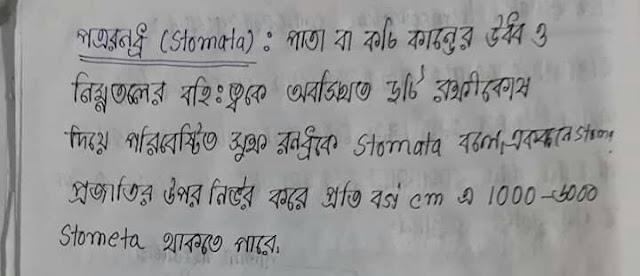 পত্ররন্ধ্র (Stomata) : পাতা বা কচি কান্ডের উর্ধব ও
নিম্নতলের বহি:ত্বকে অবস্থিত দুটি রক্ষীকোষ
দিয়ে পরিবেষ্টিত সুক্ষ রন্ধ্রকে Stomata বলে,
প্রজাতির উপর নির্ভর করে প্রতি বর্গ cm এ 1000 -
Stometa থাকতে পারে।